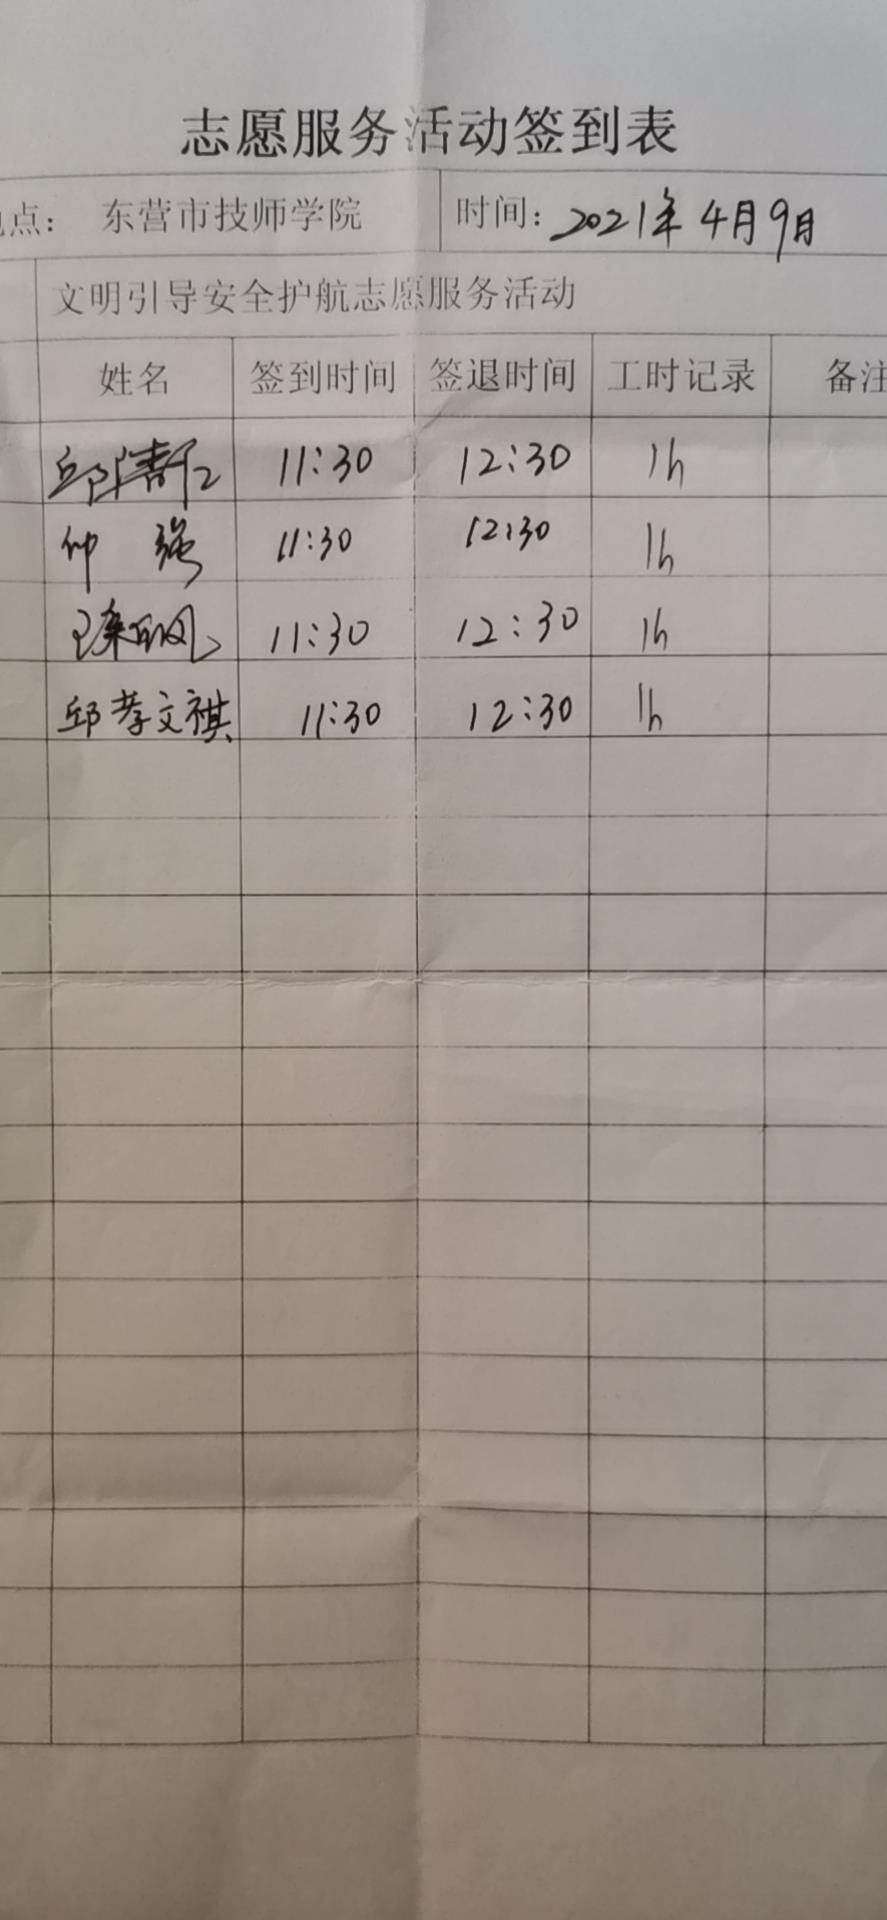 志愿服务活动签到表
点： 东营市技师学院 时间：2021年4月9日
文明引导安全护航志愿服务活动
姓名 签到时间 签退时间 工时记录 备注
11:30 12:30 1h
仲强 11:30 12:30 1h
11:30 12:30 1h
邱孝文祺 11:30 12:30 1h